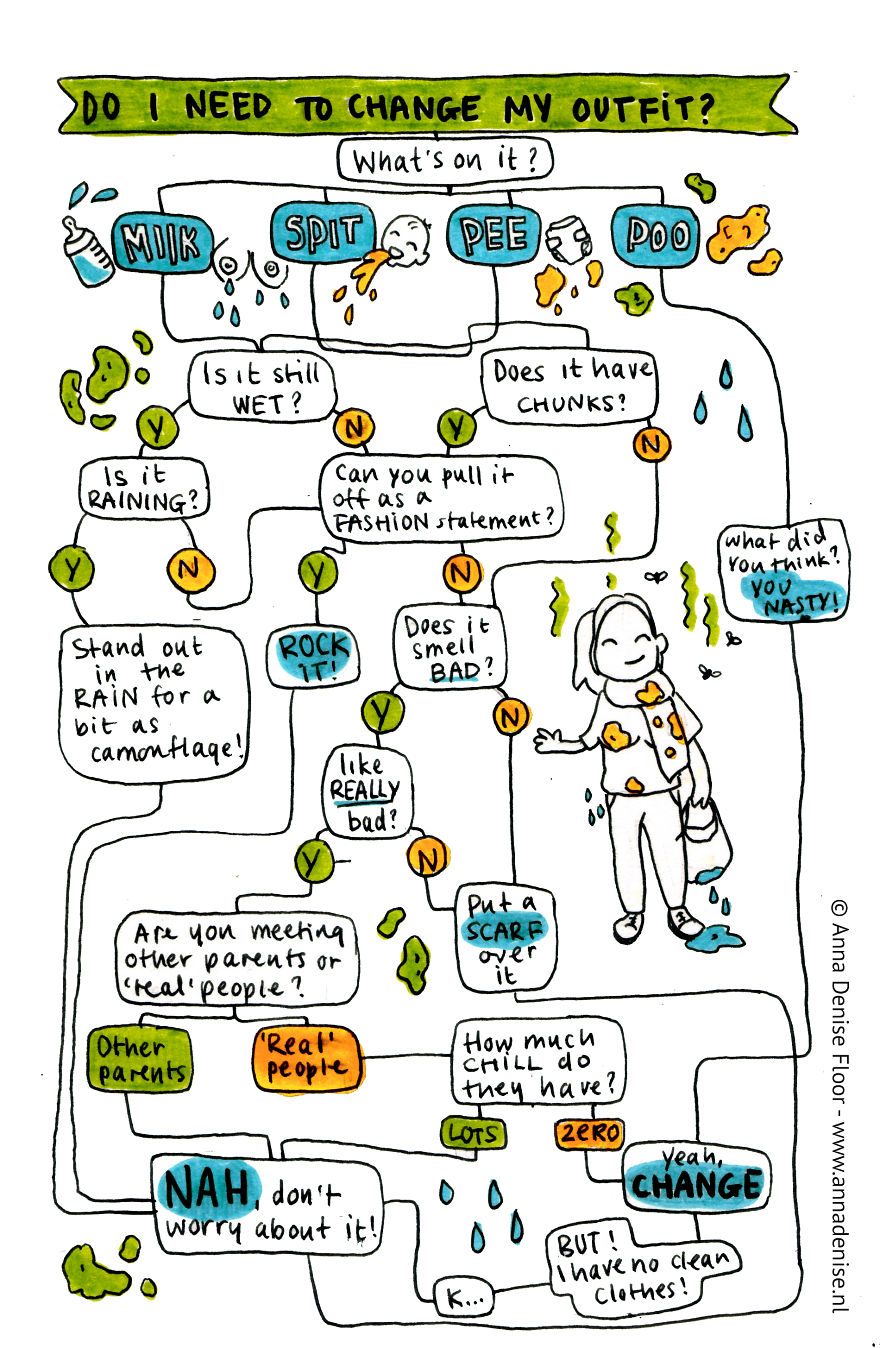 DO I NEED TO CHANGE MY OUTFIT?
What's on it?
MILK
SPIT
PEE
POO
Is it still
WET?
Does it have
CHUNKS?
Y
N
Y
N
Is it
RAINING?
Can you pull it
off as a
FASHION statement?
Y
N
Y
N
what did
you think?
YOU
NASTY!
Stand out
in the
RAIN for a
bit as
camouflage!
ROCK
IT!
Does it
smell
BAD?
Y
N
like
REALLY
bad?
Y
N
Put a
SCARF
over
it
Are you meeting
other parents or
'real' people?
Other
parents
'Real'
people
How much
CHILL do
they have?
LOTS
ZERO
yeah,
CHANGE
NAH, don't
worry about it!
BUT!
I have no clean
clothes!
K...
© Anna Denise Floor - www.annadenise.nl